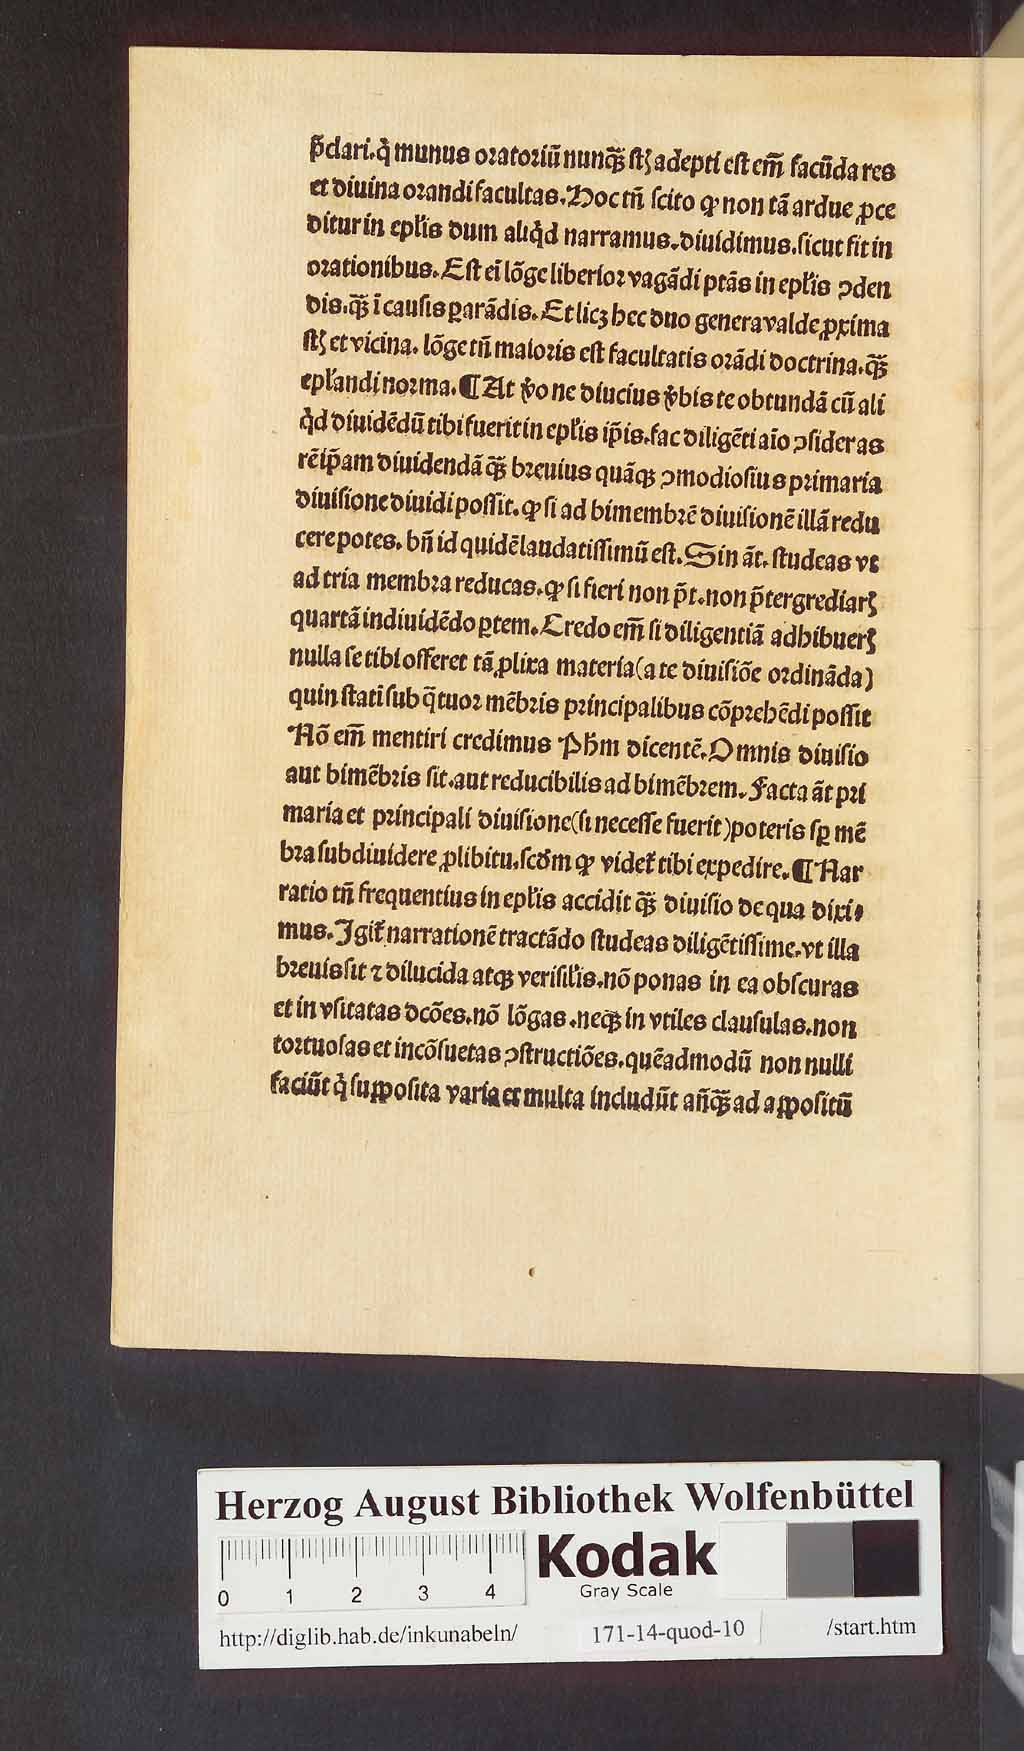 p̃clari.q̇ munus oratoriũ nunq̃ȝ sũt adepti est em̃ facũda res
et diuina orandi facultas. Hoc tñ scito ꝙ non tã ardue ꝓce
ditur in ep̃lis dum aliq̇d narramus.diuidimus.sicut fit in
orationibus. Est ei̇̃ lõge liberior vagãdi ptãs in ep̃lis ꝯden
dis.q̃ȝ ĩ causis ꝑarãdis. Et licȝ hec duo genera valde ꝓxima
sũt et vicina. lõge tñ maioris est facultatis orãdi doctrina.q̃ȝ
ep̃landi norma. ¶ At ṽo ne diucius ṽbis te obtundã cũ ali
q̇d diuidẽdũ tibi fuerit in ep̃lis ip̃is.fac diligẽti aĩo ꝯsideras
rẽ ip̃am diuidendã q̃ȝ breuius quãqꝫ ꝯmodiosius primaria
diuisione diuidi possit.ꝙ si ad bimembrẽ diuisionẽ illã redu
cere potes. bñ id quidẽ laudatissimũ est. Sin ãt. studeas vt
ad tria membra reducas.ꝙ si fieri non p̃t.non p̃tergrediarꝭ
quartã in diuidẽdo ꝑtem. Credo em̃ si diligentiã adhibuerꝭ
nulla se tibi offeret tã ꝓlixa materia (a te diuisiõe ordinãda)
quin statĩ sub q̃tuor mẽbris principalibus cõprehẽdi possit
Nõ em̃ mentiri credimus Ph̃m dicentẽ. Omnis diuisio
aut bimẽbris sit.aut reducibilis ad bimẽbrem. Facta ãt pri
maria et principali diuisione (si necesse fuerit) poteris sꝑ mẽ
bra subdiuidere ꝓ libitu.scđm ꝙ videt̃ tibi expedire. ¶ Nar
ratio tñ frequentius in ep̃lis accidit q̃ȝ diuisio de qua dixi⸗
mus. Igit̃ narrationẽ tractãdo studeas diligẽtissime.vt illa
breuis sit ⁊ dilucida atqꝫ verisil̃is.nõ ponas in ea obscuras
et in vsitatas dcões.nõ lõgas.neqꝫ in vtiles clausulas.non
tortuosas et incõsuetas ꝯstructiões.quẽadmodũ non nulli
faciũt q̇ suꝓposita varia et multa includũt añq̃ȝ ad aꝓpositũ
Herzog August Bibliothek Wolfenbüttel
0 1 2 3 4
Kodak
Gray Scale
http://diglib.hab.de/inkunabeln/ 171-14-quod-10 /start.htm